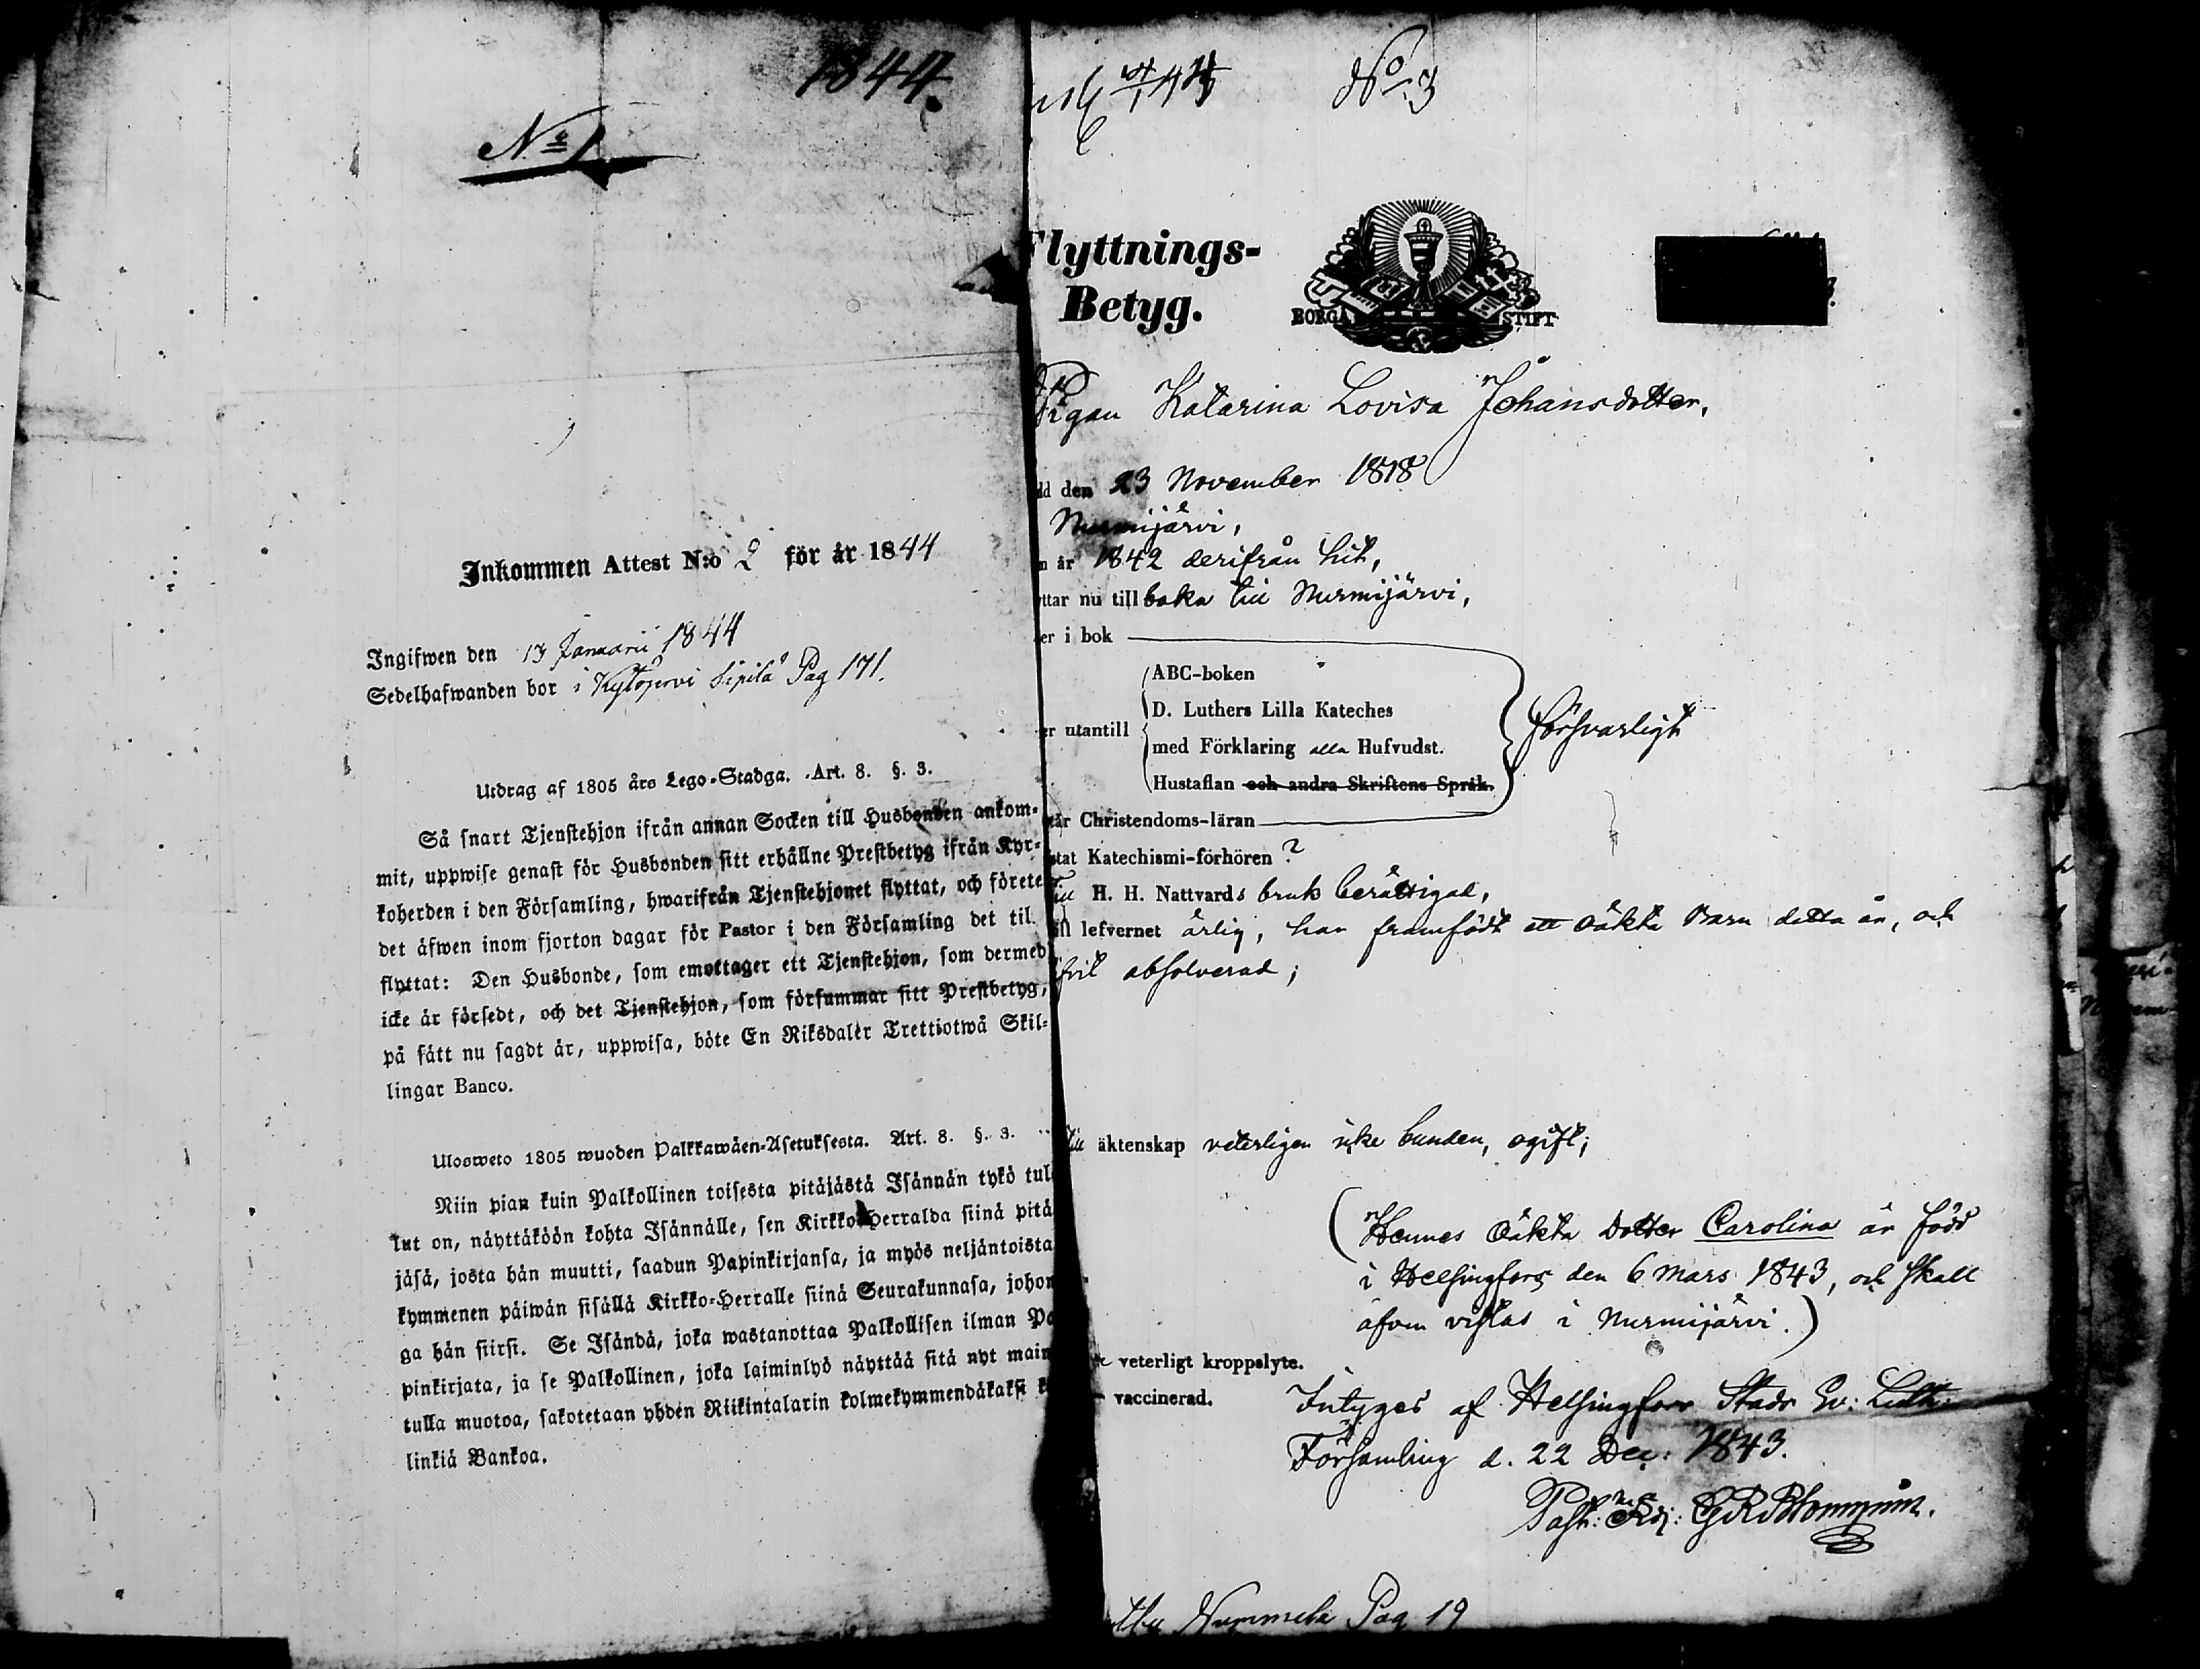 1844.
No 1
Inkommen Attest N:o 2 för år 1844
Ingifwen den 13 Januarii 1844
Sedelhafwanden bor i Kytäjervi Sipilä Pag 171.
Utdrag af 1805 års Lego-Stadga. Art. 8. §. 3.
Så snart Tjenstehjon ifrån annan Socken till Husbonden ankom-
mit, uppwise genast för Husbonden sitt erhållne Prestbetyg ifrån Kyr-
koherden i den Församling, hwarifrån Tjenstehjonet flyttat, och förete
det äfwen inom fjorton dagar för Pastor i den Församling det til
flyttat: Den Husbonde, som emottager ett Tjenstehjon, som dermed
icke är försedt, och det Tjenstehjon, som försummar sitt Prestbetyg,
på sätt nu sagdt är, uppwisa, böte En Riksdaler Trettiotwå Skil-
lingar Banco.
Ulosweto 1805 wuoden Palkkawäen-Asetuksesta. Art. 8. §. 3.
Niin pian kuin Palkollinen toisesta pitäjästä Isännän tykö tul
lut on, näyttäköön kohta Isännälle, sen Kirkko-Herralda siinä pitä
jäsä, josta hän muutti, saadun Papinkirjansa, ja myös neljäntoista
kymmenen päiwän sisällä Kirkko-Herralle siinä Seurakunnasa, johon
ga hän siirsi. Se Isändä, joka wastanottaa Palkollisen ilman Pa
pinkirjata, ja se Palkollinen, joka laiminlyö näyttää sitä nyt main
tulla muotoa, sakotetaan yhden Riikintalarin kolmekymmendäkaksi k
linkiä Bankoa.
No 3
Flyttnings-
Betyg.
BORGÅ STIFT
Pigan Katarina Lovisa Johansdotter,
dd den 23 November 1818
Nurmijärvi,
n år 1842 derifrån hit,
yttar nu till baka till Nurmijärvi,
er i bok
ABC-boken
D. Luthers Lilla Kateches
er utantill
med Förklaring alla Hufvudst.
försvarligt
Hustaflan och andra Skriftens Språk.
tår Christendoms-läran
stat Katechismi-förhören ?
Till H. H. Nattvards bruk berättigad,
till lefvernet ärlig, har framfödt ett oäkta Barn detta år, och
absolverad;
till äktenskap veterligen icke bunden, ogift;
(Hennes oäkta dotter Carolina är född
i Helsingfors den 6 Mars 1843, och skall
äfven vistas i Nurmijärvi.)
veterligt kroppslyte.
vaccinerad.
Intygas af Helsingfors Stads Ev: Luth:
Församling d. 22 Dec: 1843.
Past: Adj:
Nummela Pag 19